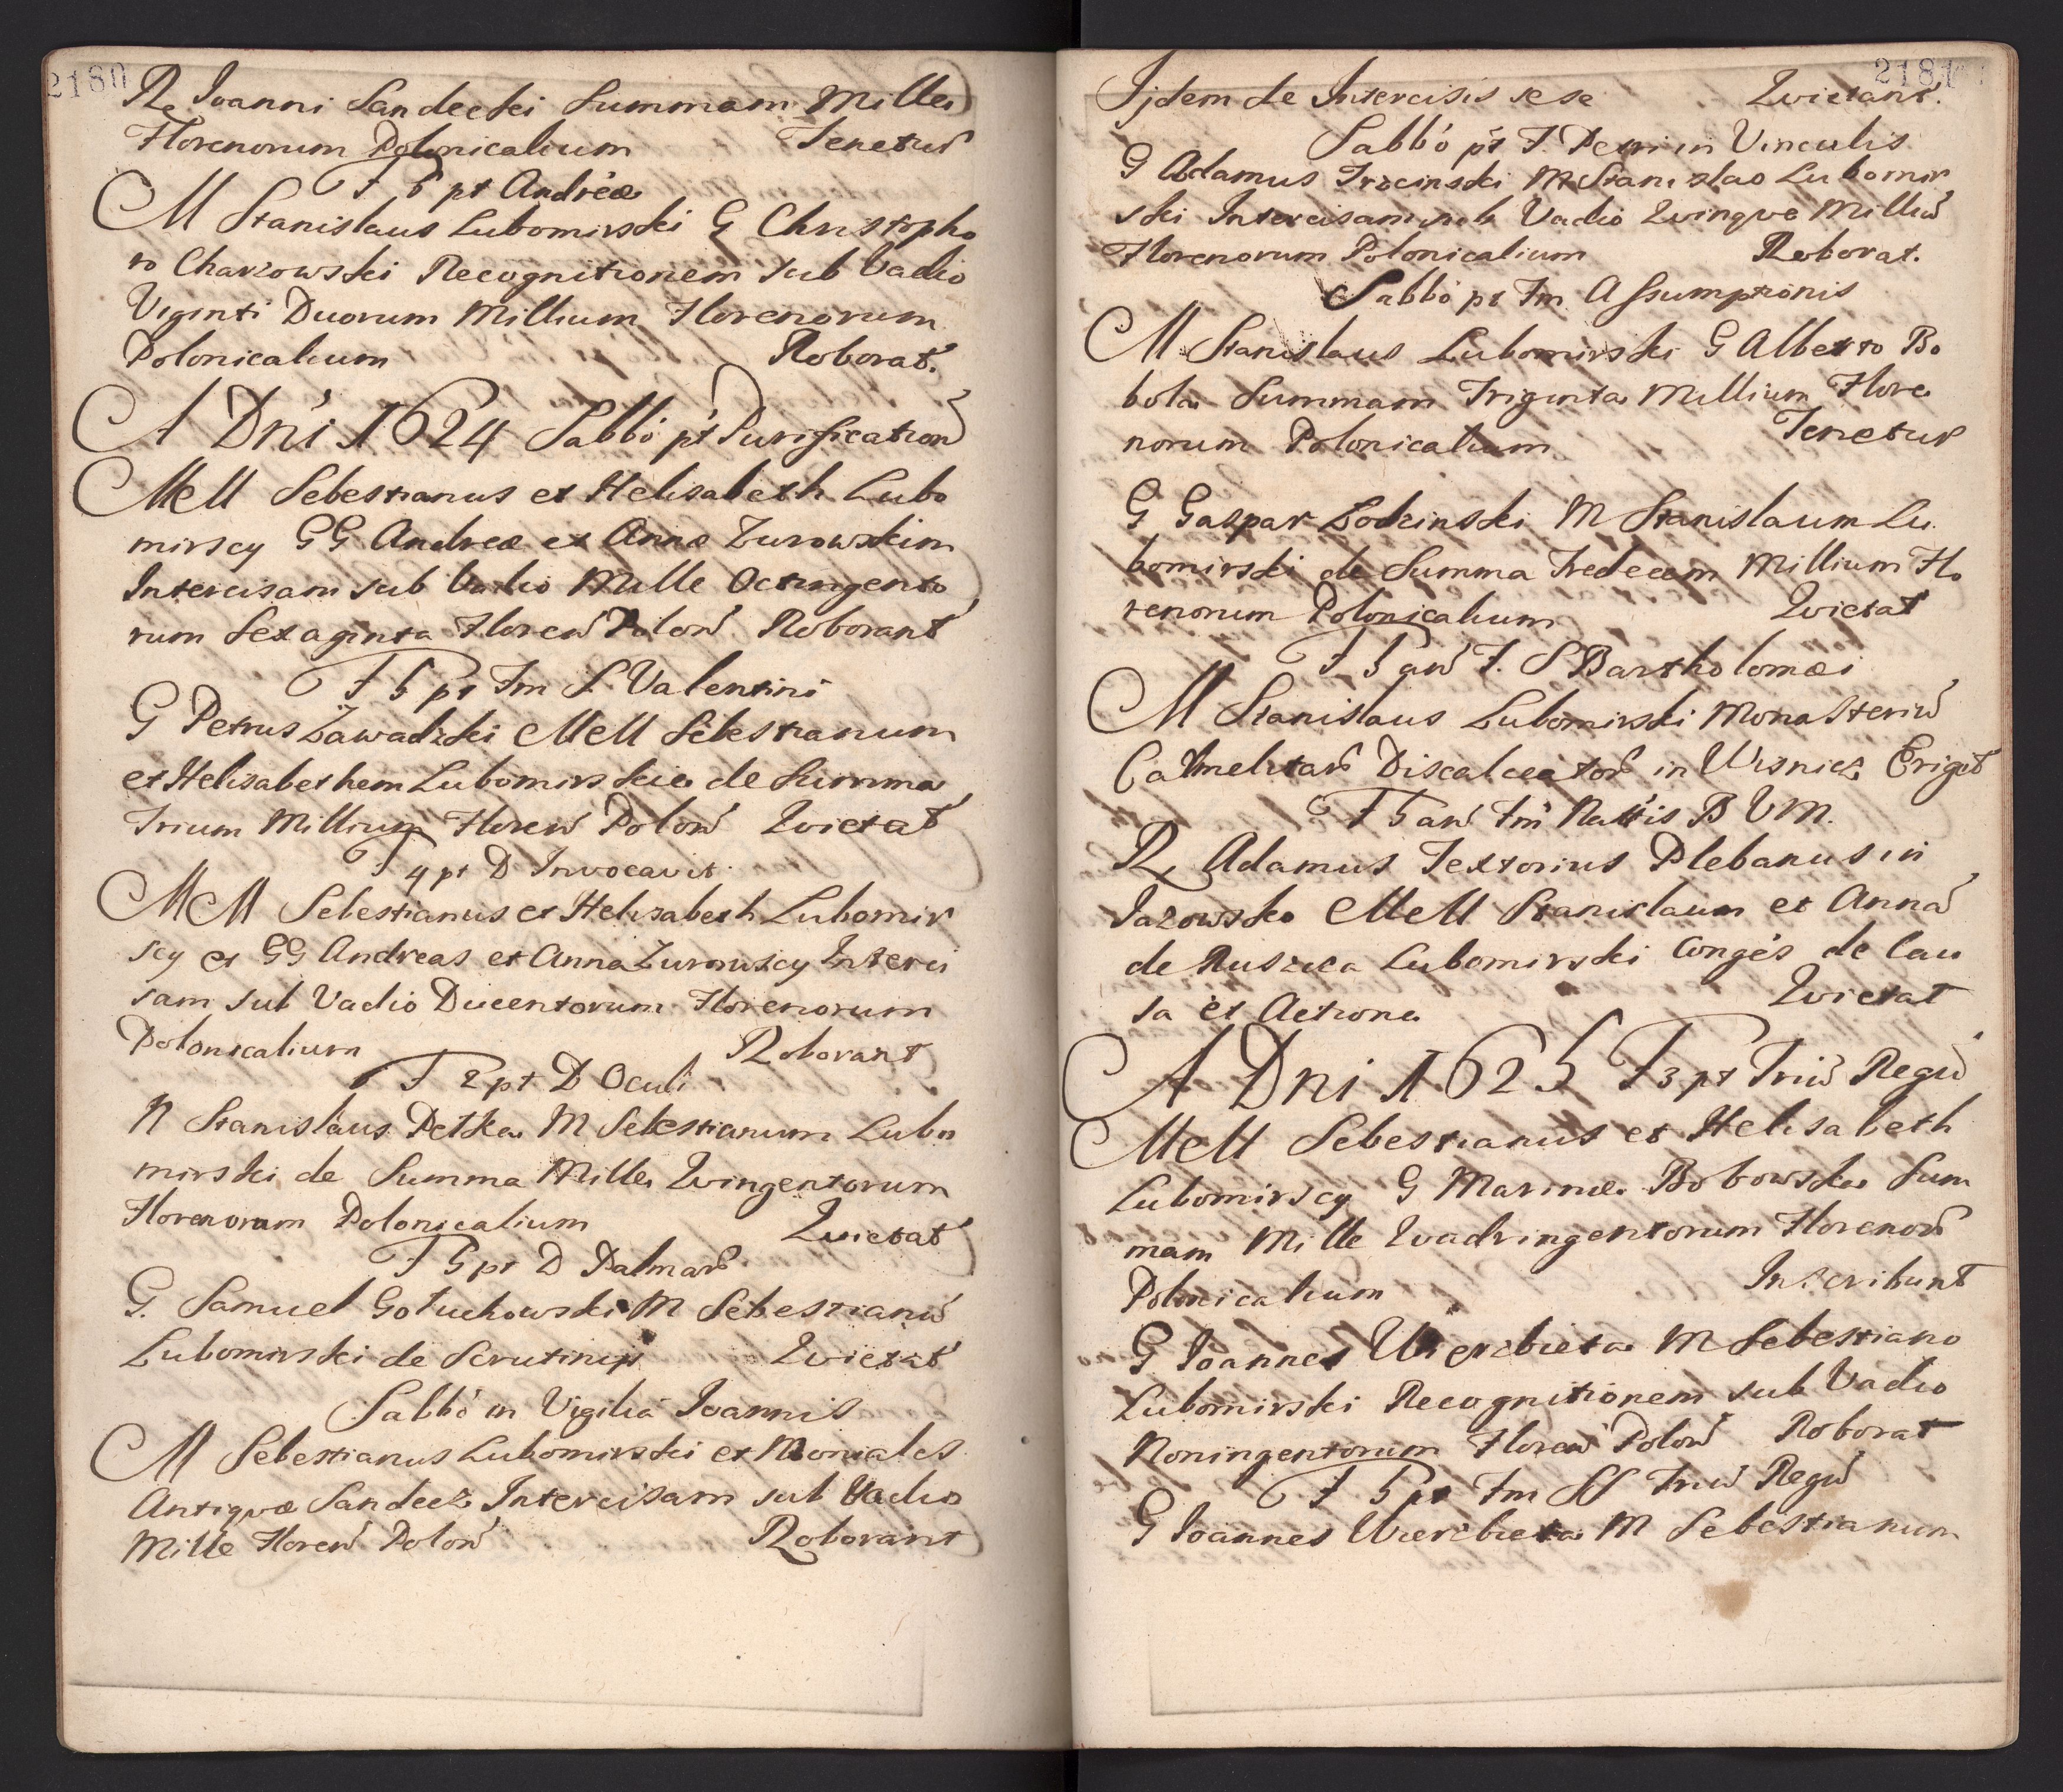 2180
R Joanni Sandecki Summam Mille
Florenorum Polonicalium Tenetur
F 5 pt Andreæ
M Stanislaus Lubomirski G Christopho
ro Charzowski Recognitionem sub Vadio
Viginti Duorum Millium Florenorum
Polonicalium Roborat.
A Dni 1624 Sabbo pt Purification
MM Sebestianus et Helisabeth Lubo
mirscy GG Andreæ et Annæ Zurowskim
Intercisam sub Vadio Mille Octingento
rum Sexaginta Floren Polon Roborant
F 5 pt Fm S. Valentini
G Petrus Zawadzki MM Sebestianum
et Helisabethem Lubomirskie de Summa
Trium Millium Floren Polon Quietat
F 4 pt D Invocavit
MM Sebestianus et Helisabeth Lubomir
scy et GG Andreas et Anna Zurowscy Interci
sam sub Vadio Ducentorum Florenorum
Polonicalium Roborant
F 2 pt D Oculi
N Stanislaus Petka M Sebestianum Lubo
mirski de Summa Mille Quingentorum
Florenorum Polonicalium Quietat
F 5 pt D Palmar
G. Samuel Gołuchowski M Sebestianu
Lubomirski de Scrutinijs Quietat
Sabbo in Vigilia Joannis
M Sebestianus Lubomirski et Moniales
Antiquæ Sandecz Intercisam sub Vadio
Mille Floren Polon Roborant
2181
Ijdem de Intercisis sese Quietant.
Sabbo pt F. Petri in Vinculis
G Adamus Trocinski M Stanislao Lubomir
ski Intercisam sub Vadio Quinque Milliu
Florenorum Polonicalium Roborat.
Sabbo pt Fm Assumptionis
M Stanislaus Lubomirski G Alberto Bo
bola Summam Triginta Millium Flore
norum Polonicalium Tenetur
G Gaspar Łodzinski M Stanislaum Lu
bomirski de Summa Tredecem Millium Flo
renorum Polonicalium Quietat
F 5 an F. S Bartholomæi
M Stanislaus Lubomirski Monasteriu
Calmelitar Discalceator in Wisnicz Erigit
F 5 an Fm Nattis B V M.
R Adamus Textorius Plebanus in
Jazowsko MM Stanislaum et Anna
de Ruszcza Lubomirski Conges de Cau
sa et Actione Quietat
A Dni 1625 F 3 pt Triu Regu
MM Sebestianus et Helisabeth
Lubomirscy G Marinæ Bobowska Sum
mam Mille Quadringentorum Florenor
Polonicalium Inscribunt
G Joannes Wierzbieta M Sebestiano
Lubomirski Recognitionem sub Vadio
Noningentorum Floren Polon Roborat
F 5 pt Fm SS Triu Regu
G Joannes Wierzbieta M Sebestianum